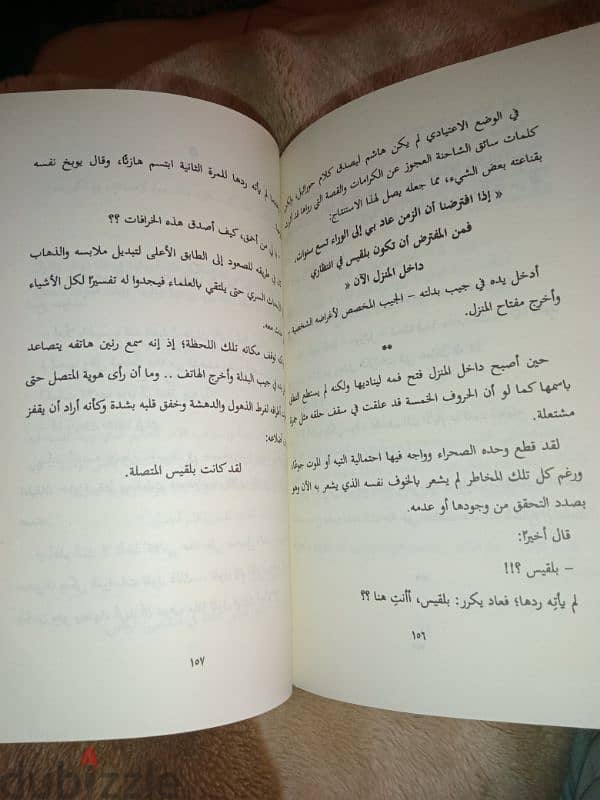 في الوضع الاعتيادي لم يكن هاشم ليصدق كلام
كلمات سائق الشاحنة العجوز عن الكرامات والقصة التي رواها له
بقناعته بعض الشيء، مما جعله يصل لهذا الاستنتاج:
« إذا افترضنا أن الزمن عاد بي إلى الوراء تسع سنوات،
فمن المفترض أن تكون بلقيس في انتظاري
داخل المنزل الآن «
أدخل يده في جيب بدلته – الجيب المخصص لأغراضه الشخصية –
وأخرج مفتاح المنزل.
**
حين أصبح داخل المنزل فتح فمه ليناديها ولكنه لم يستطع
باسمها كما لو أن الحروف الخمسة قد علقت في سقف حلقه مثل
مشتعلة.
لقد قطع وحده الصحراء وواجه فيها احتمالية التيه أو الموت جوعًا،
ورغم كل تلك المخاطر لم يشعر بالخوف نفسه الذي يشعر به الآن وهو
بصدد التحقق من وجودها أو عدمه.
قال أخيرًا:
– بلقيس ؟!!
لم يأتِه ردها؛ فعاد يكرر: بلقيس، أأنتِ هنا ؟؟
١٥٦
لم يأته ردها للمرة الثانية ابتسم هازئًا، وقال يوبخ نفسه
من أحمق، كيف أصدق هذه الخرافات ؟؟
في طريقه للصعود إلى الطابق الأعلى لتبديل ملابسه والذهاب
السري حتى يلتقي بالعلماء فيجدوا له تفسيرًا لكل الأشياء
معه.
توقف مكانه تلك اللحظة؛ إذ إنه سمع رنين هاتفه يتصاعد
في جيب البدلة وأخرج الهاتف .. وما أن رأى هوية المتصل حتى
لفرط الذهول والدهشة وخفق قلبه بشدة وكأنه أراد أن يقفز
أضلاعه:
لقد كانت بلقيس المتصلة.
١٥٧
dubizzle